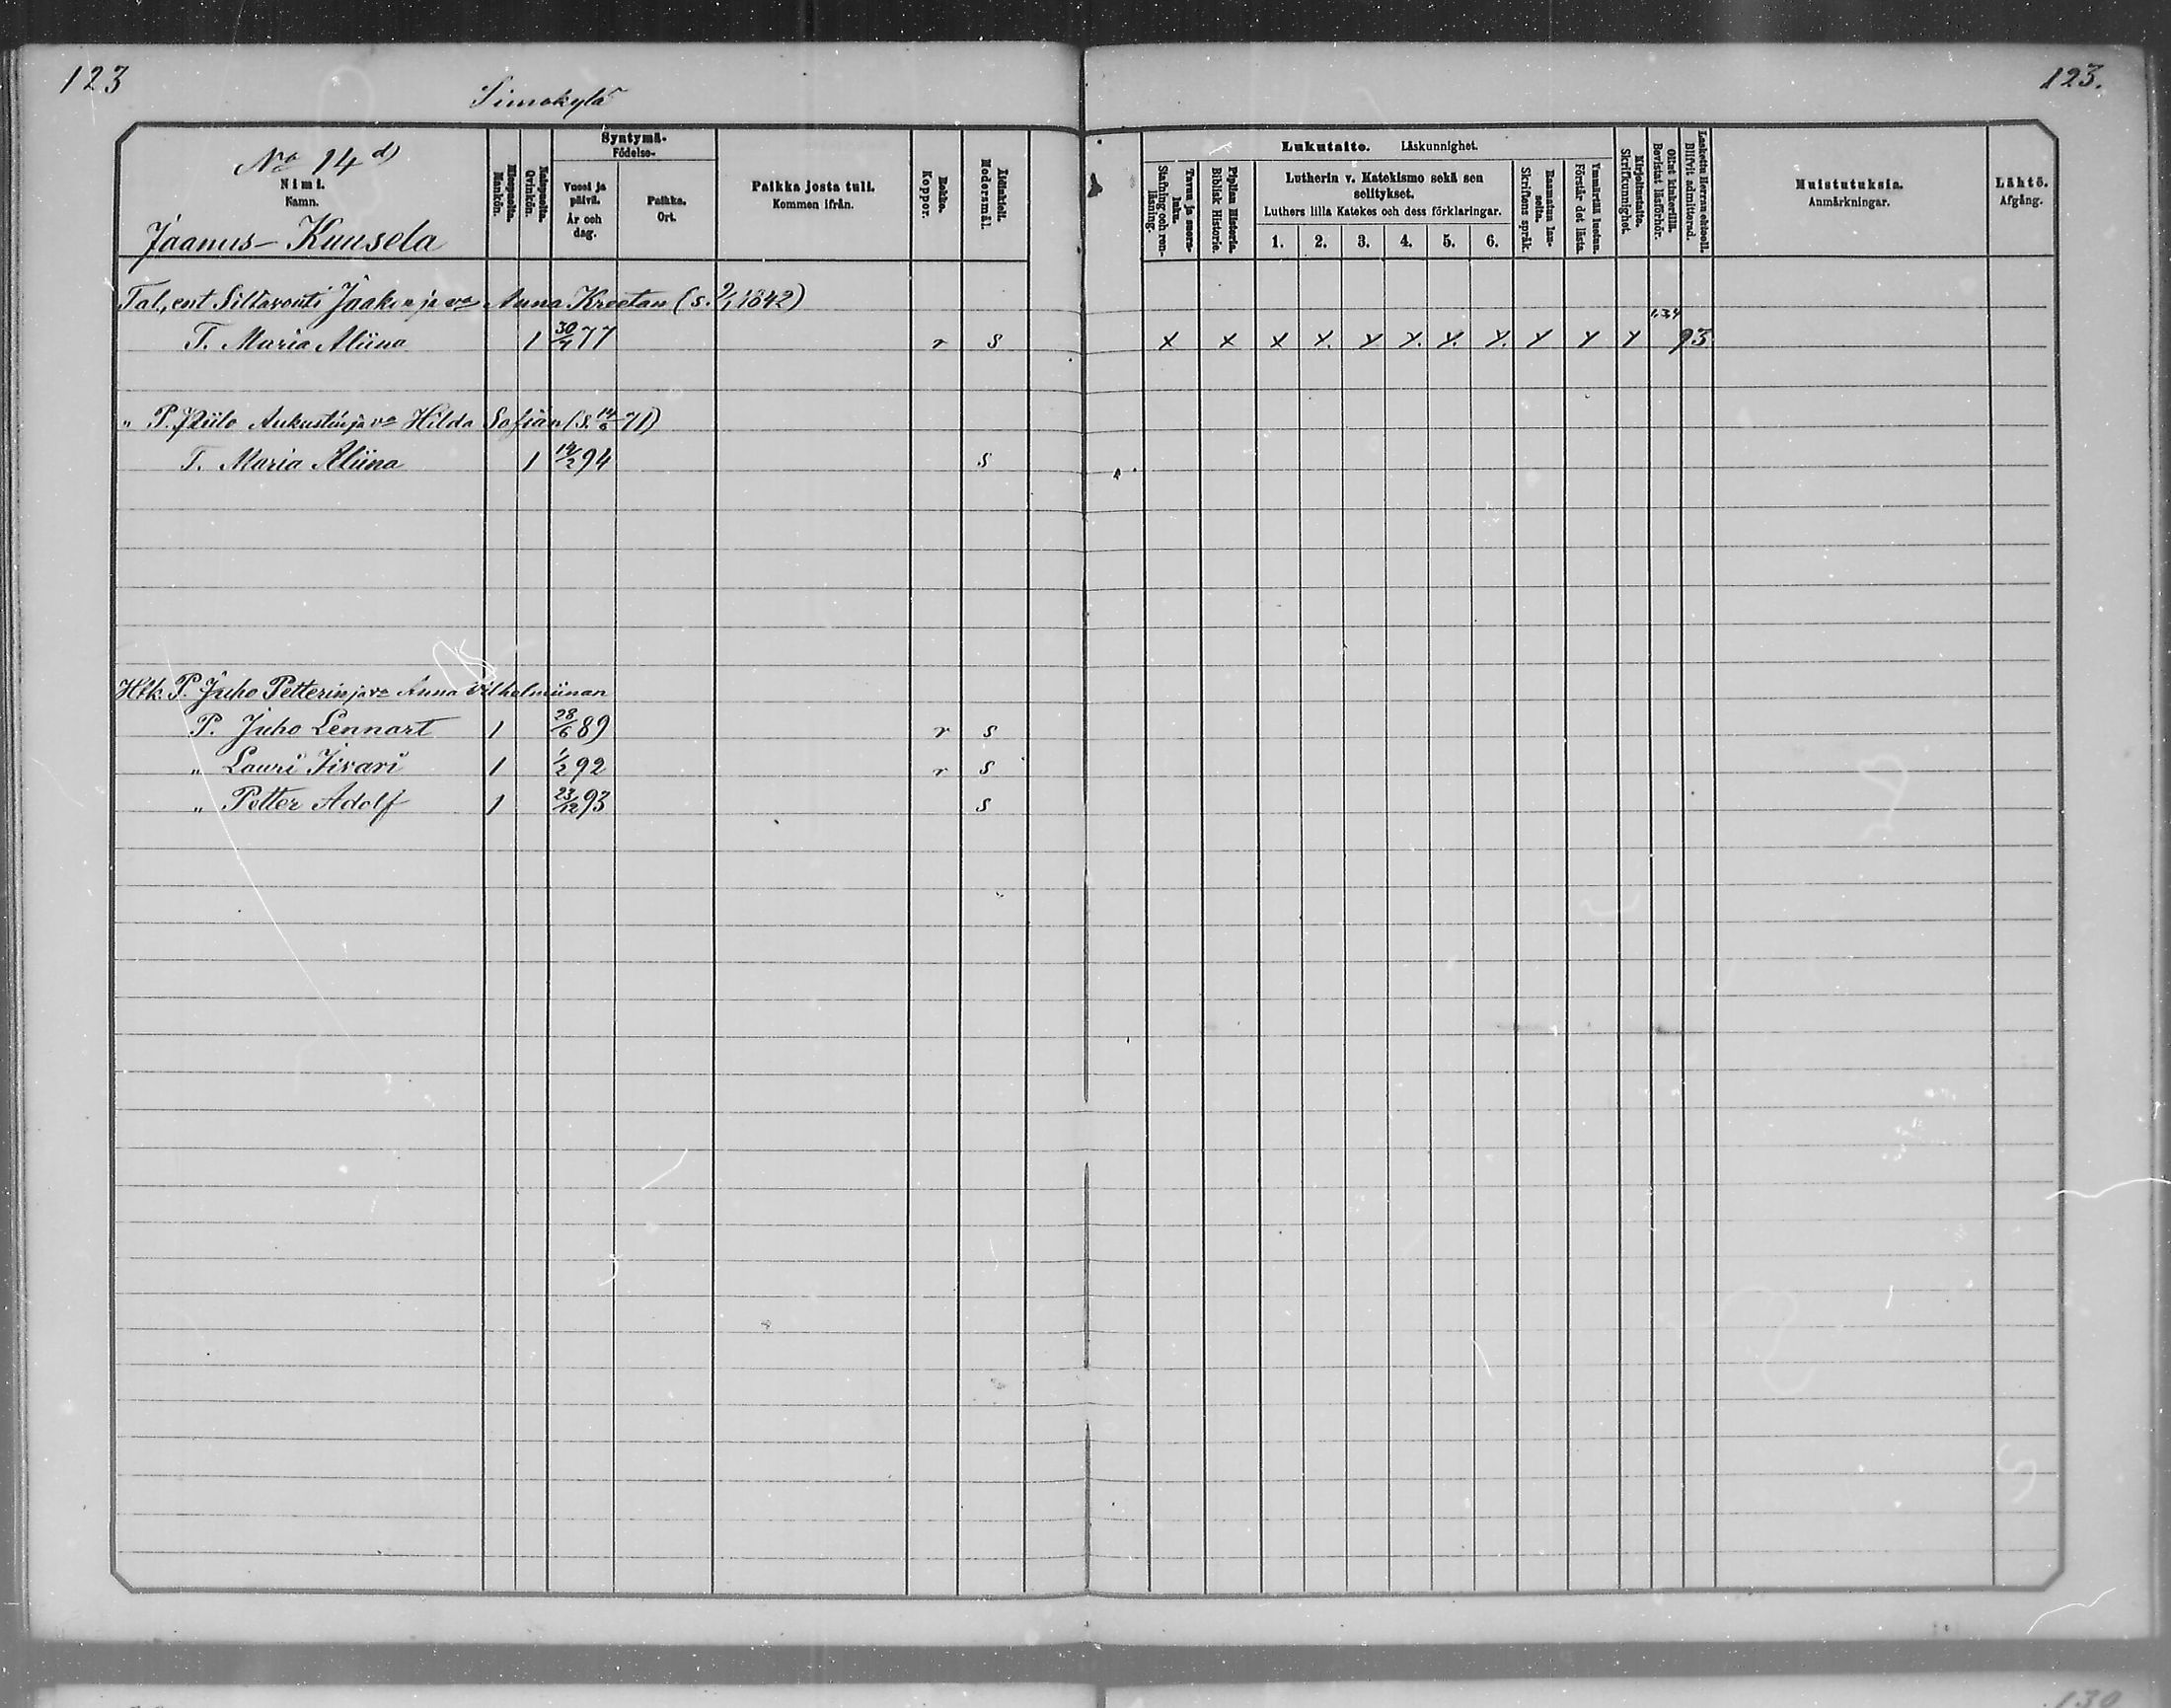 123
123.
Simokylä
No 14 d)
Nimi.
Namn.
Jaanus-Kuusela
Miespuolia.
Mankön.
Vaimopuolia.
Qvinkön.
Syntymä-
Födelse-
Vuosi ja
päivä.
År och
dag.
Paikka.
Ort.
Paikka josta tuli.
Kommen ifrån.
Rokko.
Koppor.
Äidinkieli.
Modersmål.
Lukutaito. Läskunnighet.
Tavuu ja suora-
luku.
Stafning och ren-
läsning.
Piplian Historia.
Biblisk Historie.
Lutherin v. Katekismo sekä sen
selitykset.
Luthers lilla Katekes och dess förklaringar.
1. 2. 3. 4. 5. 6.
Raamatun lau-
seita.
Skriftens språk.
Ymmärtää luetun.
Förstår det lästa.
Kirjoitustaito.
Skriftkunnighet.
Ollut kinkerillä.
Bevistat läsförhör.
Laskettu Herran ehtool.
Blifvit admitterad.
Muistutuksia.
Anmärkningar.
Lähtö.
Afgång.
Tal., ent Siltavouti Jaakon ja vo Anna Kreetan (s. 9/1 1842)
T. Maria Aliina 1 30/4 77 r s x x x x. y y. y. y. y y y 1.3.4 93
„ P. Kiilo Aukustin ja vo Hilda Sofian (s. 14/6 71)
T. Maria Aliina 1 14/2 94 s
Htk. P. Juho Petterin ja vo Anna Vilhelmiinan
P. Juho Lennart 1 28/6 89 r s
„ Lauri Iivari 1 1/2 92 r s
„ Petter Adolf 1 23/12 93 s
130